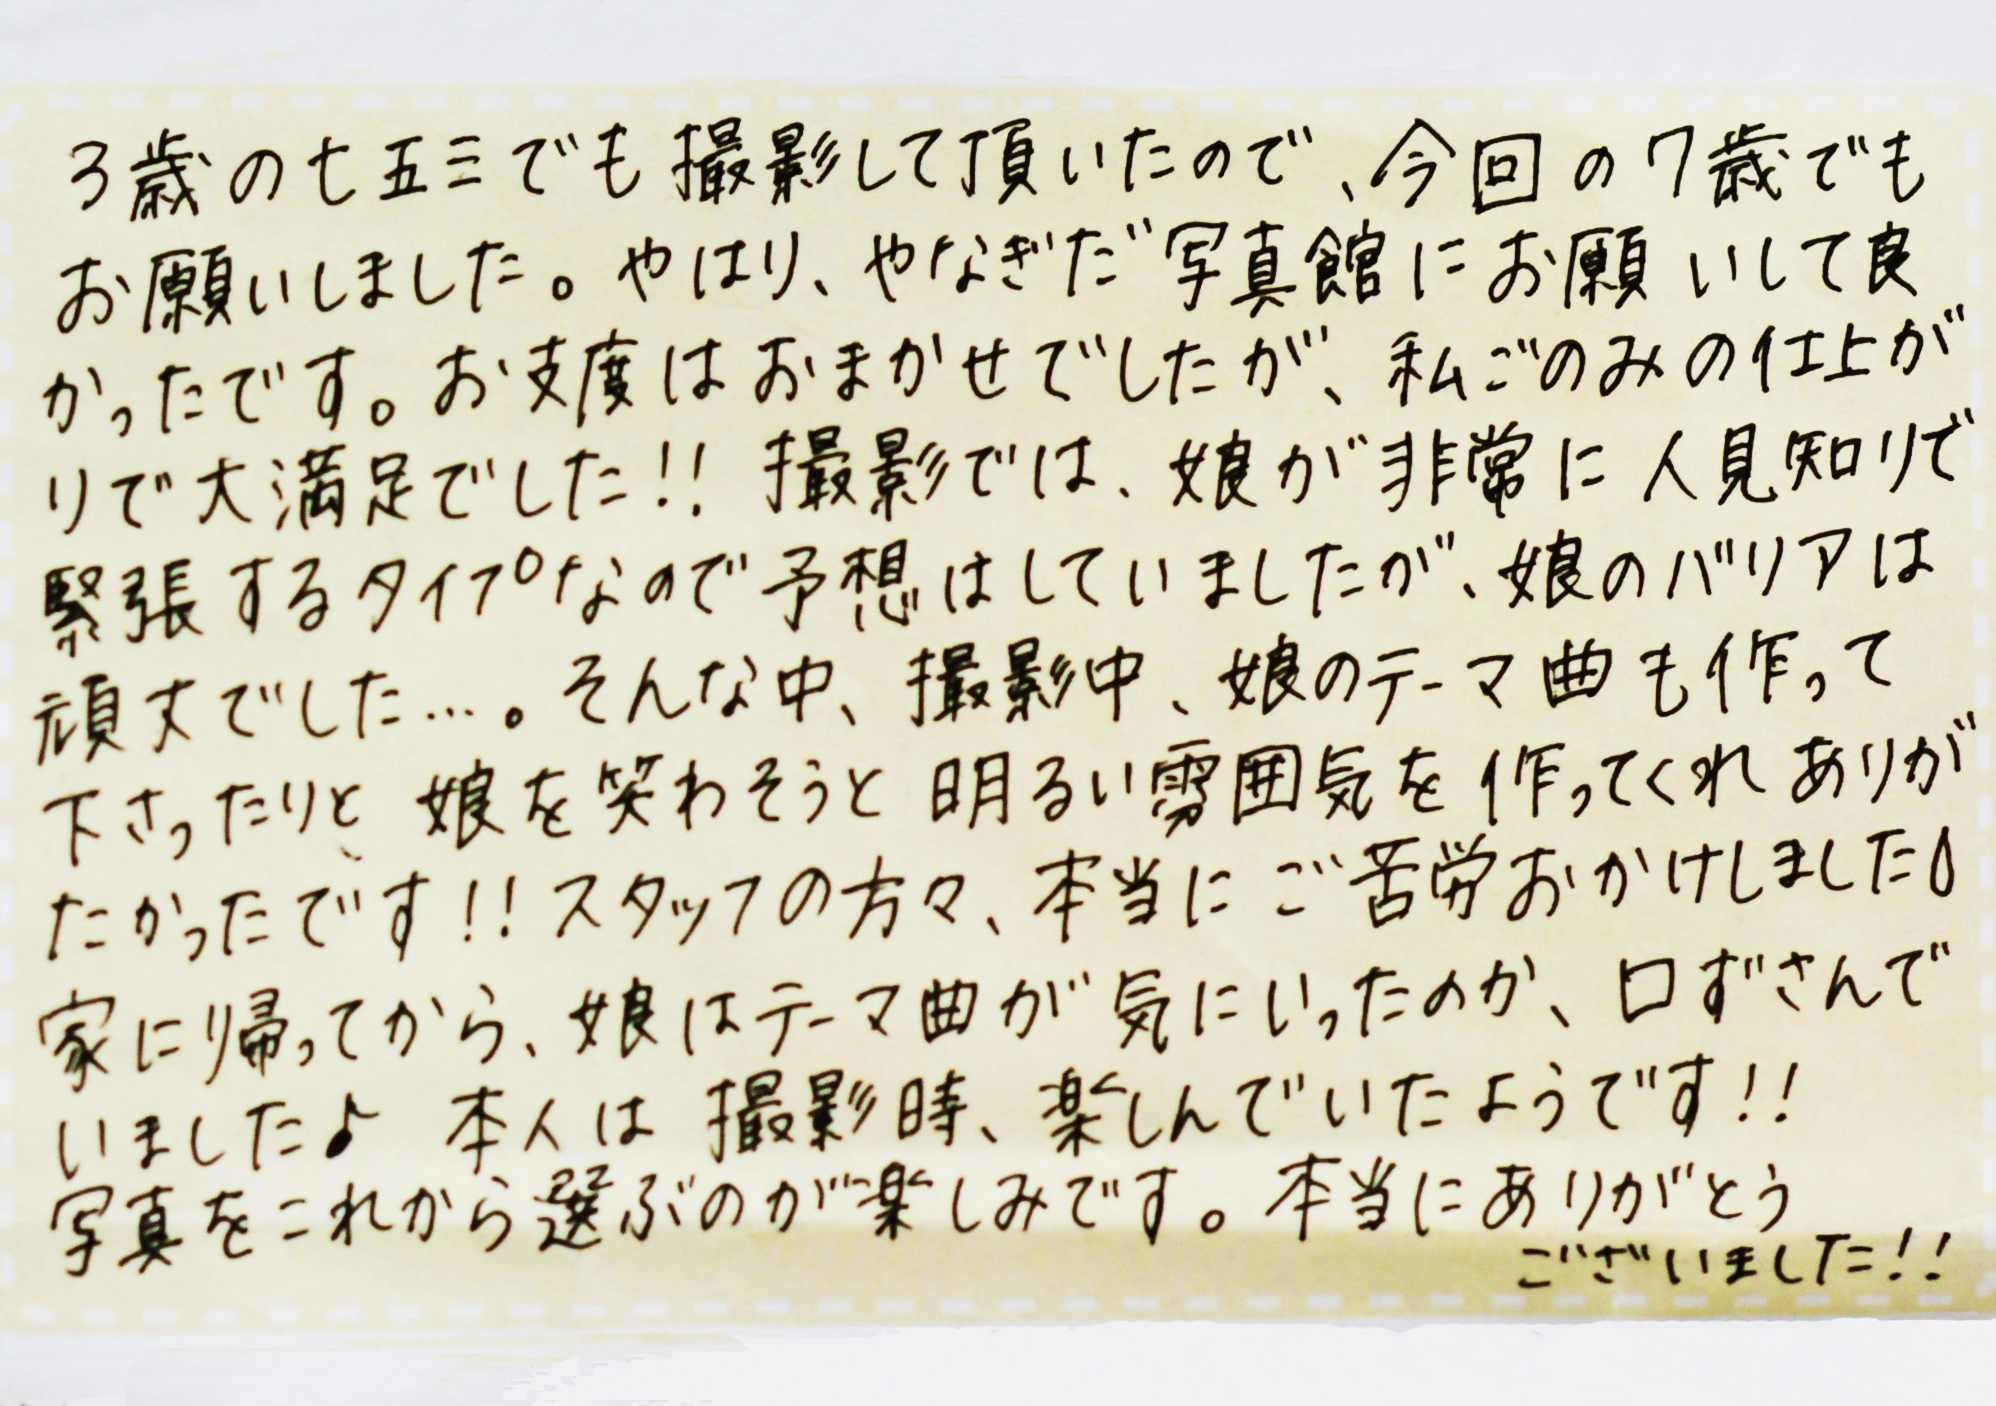 3歳の七五三でも撮影して頂いたので、今回の7歳でも
お願いしました。やはり、やなぎだ写真館にお願いして良
かったです。お支度はおまかせでしたが、私ごのみの仕上が
りで大満足でした!!撮影では、娘が非常に人見知りで
緊張するタイプなので予想はしていましたが、娘のバリアは
頑丈でした…。そんな中、撮影中、娘のテーマ曲も作って
下さったりと、娘を笑わそうと明るい雰囲気を作ってくれありが
たかったです!!スタッフの方々、本当にご苦労おかけしました
家に帰ってから、娘はテーマ曲が気にいったのか、口ずさんで
いました♪ 本人は撮影時、楽しんでいたようです!!
写真をこれから選ぶのが楽しみです。本当にありがとう
ございました!!